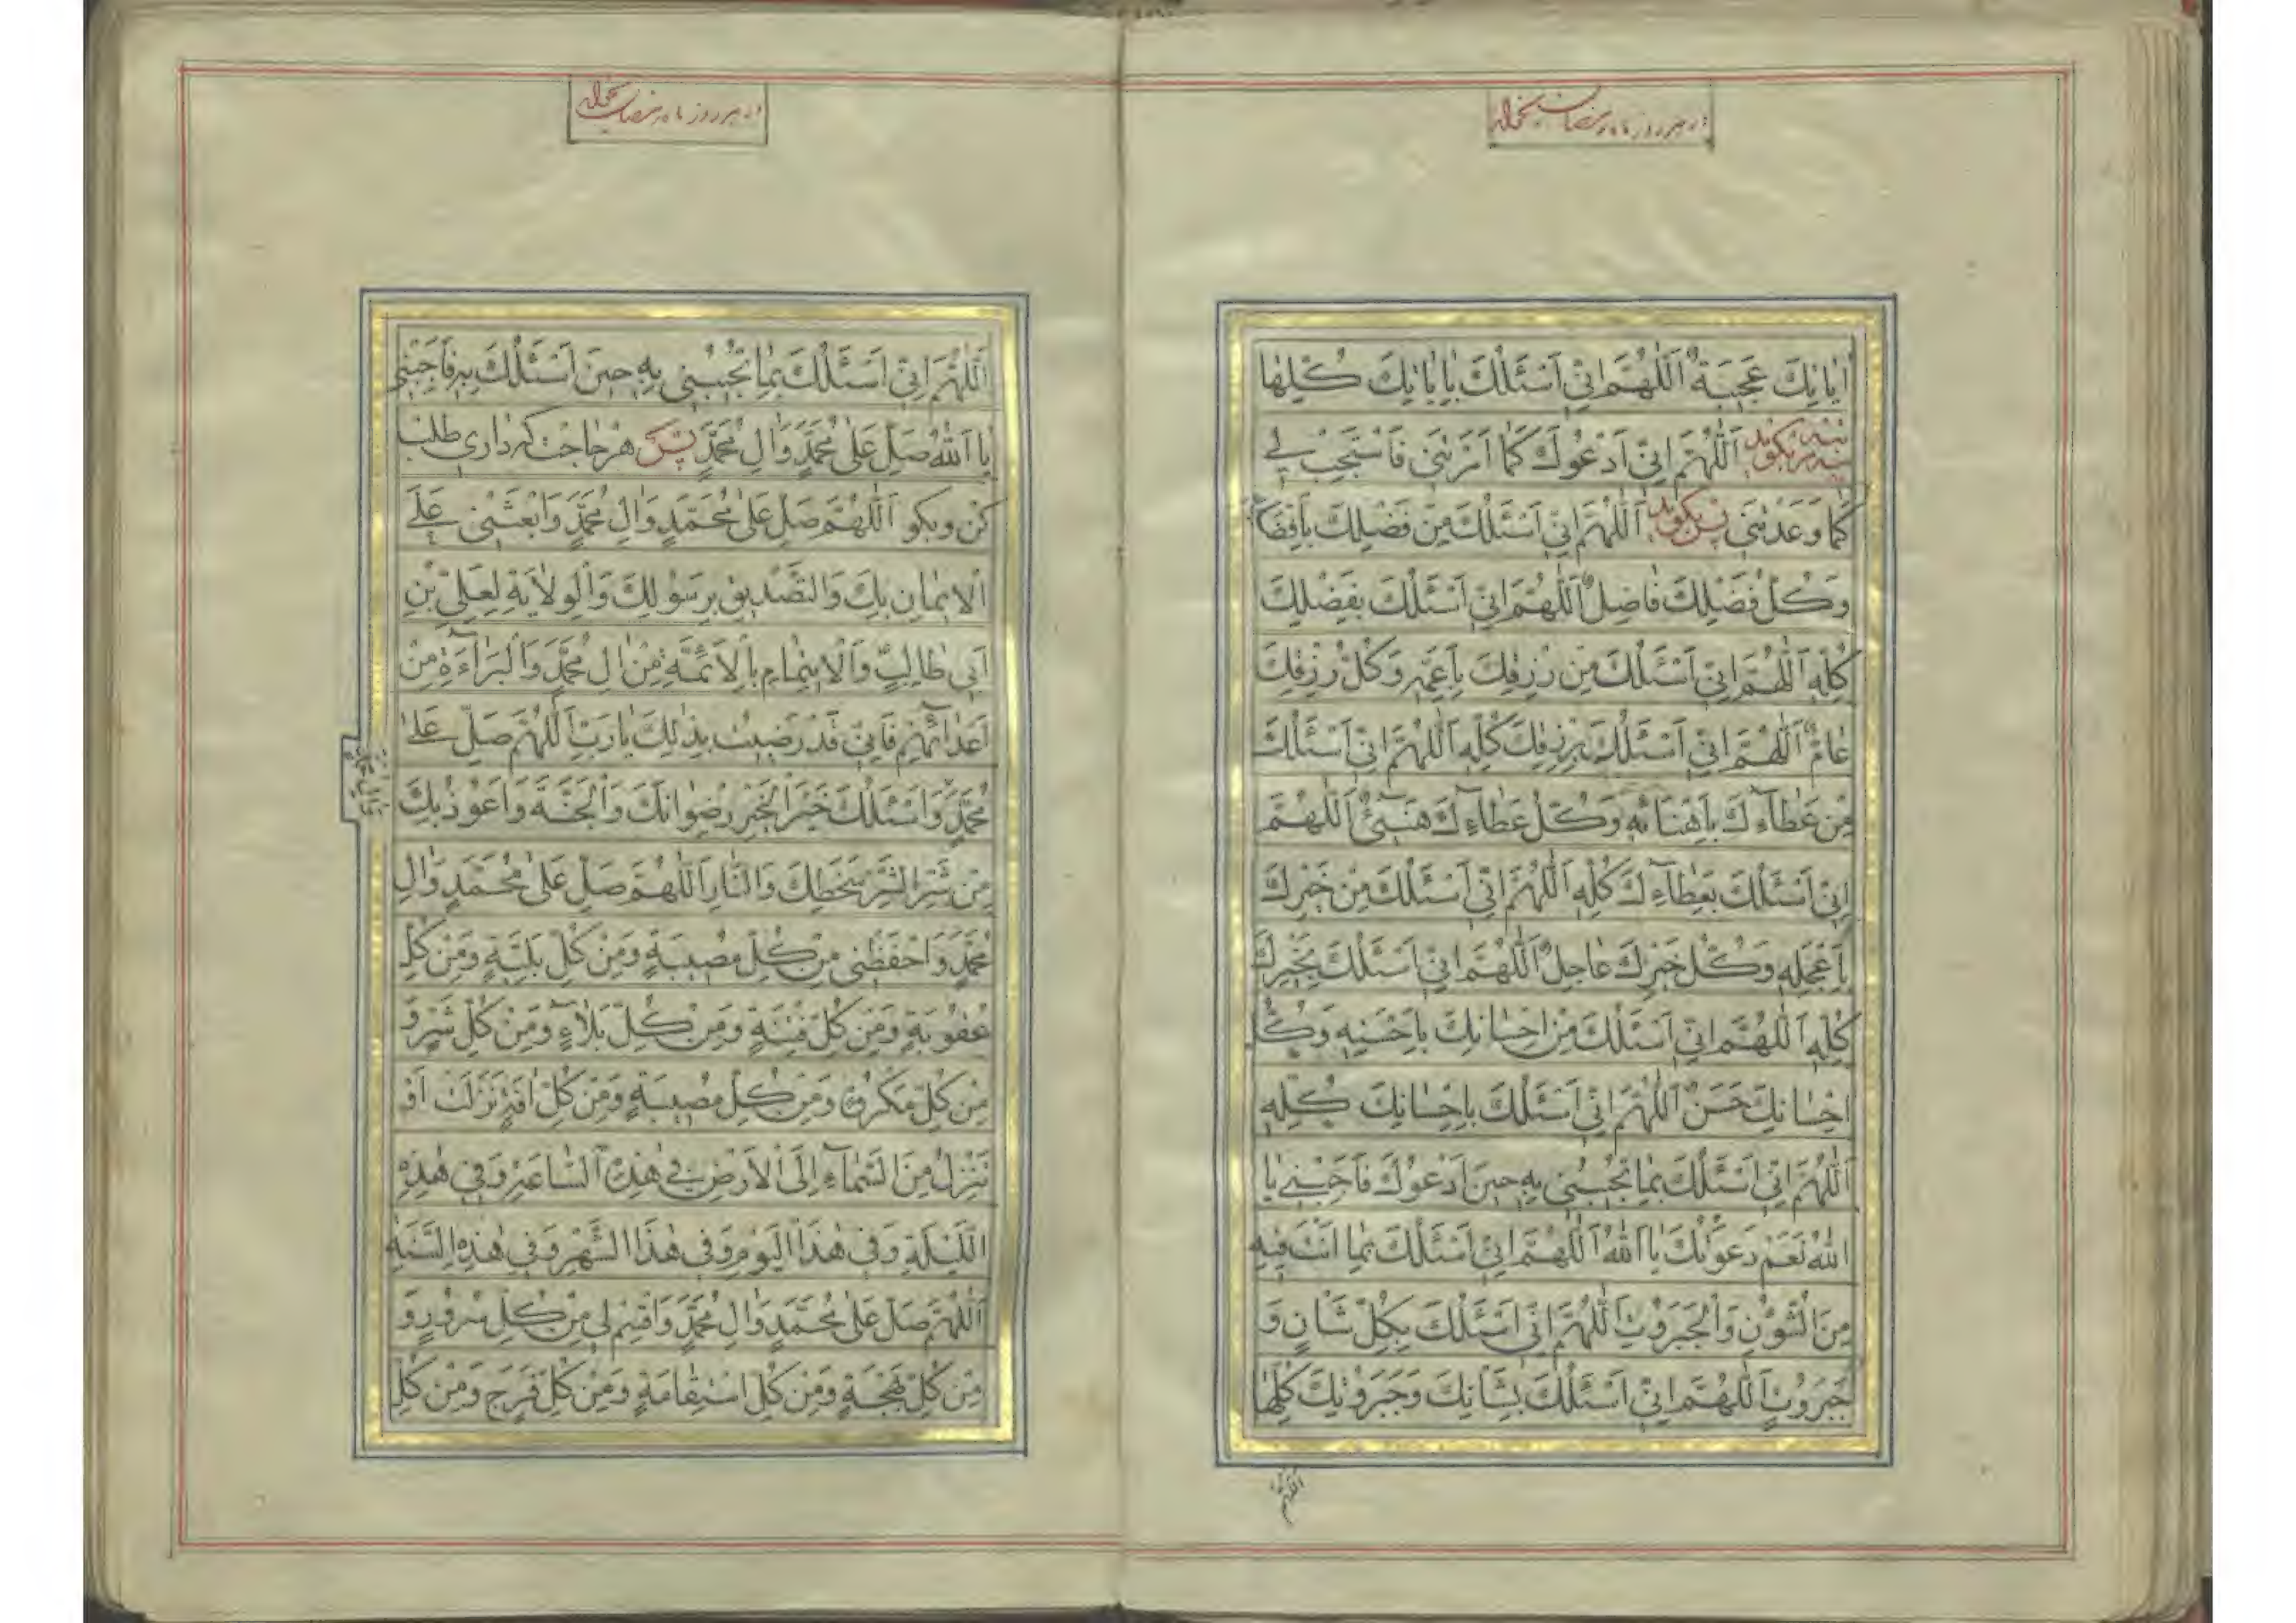 در هر روز ماه رمضان بخواند
اٰيٰاتِكَ عَجيبَةٌ اَللّٰهُمَّ اِنّى اَسْئَلُكَ بِاٰيٰاتِكَ كُلِّهٰا
اَللّٰهُمَّ اِنّى اَدْعُوكَ كَمٰا اَمَرْتَنى فَاسْتَجِبْ لى
كَمٰا وَعَدْتَنى پس بگويد اَللّٰهُمَّ اِنّى اَسْئَلُكَ مِنْ فَضْلِكَ بِاَفْضَلِهِ
وَكُلُّ فَضْلِكَ فٰاضِلٌ اَللّٰهُمَّ اِنّى اَسْئَلُكَ بِفَضْلِكَ
كُلِّهِ اَللّٰهُمَّ اِنّى اَسْئَلُكَ مِنْ رِزْقِكَ بِاَعَمِّهِ وَكُلُّ رِزْقِكَ
عٰامٌّ اَللّٰهُمَّ اِنّى اَسْئَلُكَ بِرِزْقِكَ كُلِّهِ اَللّٰهُمَّ اِنّى اَسْئَلُكَ
مِنْ عَطٰآءِكَ بِاَهْنَائِهِ وَكُلُّ عَطٰآءِكَ هَنيئٌ اَللّٰهُمَّ
اِنّى اَسْئَلُكَ بِعَطٰآءِكَ كُلِّهِ اَللّٰهُمَّ اِنّى اَسْئَلُكَ مِنْ خَيْرِكَ
بِاَعْجَلِهِ وَكُلُّ خَيْرِكَ عٰاجِلٌ اَللّٰهُمَّ اِنّى اَسْئَلُكَ بِخَيْرِكَ
كُلِّهِ اَللّٰهُمَّ اِنّى اَسْئَلُكَ مِنْ اِحْسٰانِكَ بِاَحْسَنِهِ وَكُلُّ
اِحْسٰانِكَ حَسَنٌ اَللّٰهُمَّ اِنّى اَسْئَلُكَ بِاِحْسٰانِكَ كُلِّهِ
اَللّٰهُمَّ اِنّى اَسْئَلُكَ بِمٰا تُجيبُنى بِهِ حينَ اَدْعُوكَ فَاَجِبْنى يٰا
اَللّٰهُ نَعَمْ دَعَوْتُكَ يٰا اَللّٰهُ اَللّٰهُمَّ اِنّى اَسْئَلُكَ بِمٰا اَنْتَ فيهِ
مِنَ الشُّؤُنِ وَالْجَبَرُوتِ اَللّٰهُمَّ اِنّى اَسْئَلُكَ بِكُلِّ شَاْنٍ وَ
جَبَرُوتٍ اَللّٰهُمَّ اِنّى اَسْئَلُكَ بِشَاْنِكَ وَجَبَرُوتِكَ كُلِّهٰا
اَللّٰهُمَّ
در هر روز ماه رمضان بخواند
اَللّٰهُمَّ اِنّى اَسْئَلُكَ بِمٰا تُجيبُنى بِهِ حينَ اَسْئَلُكَ بِهِ فَاَجِبْنى
يٰا اَللّٰهُ صَلِّ عَلٰى مُحَمَّدٍ وَاٰلِ مُحَمَّدٍ پس هر حاجت كه دارى طلب
كن و بگو اَللّٰهُمَّ صَلِّ عَلٰى مُحَمَّدٍ وَاٰلِ مُحَمَّدٍ وَابْعَثْنى عَلَى
الْايمٰانِ بِكَ وَالتَّصْديقِ بِرَسُولِكَ وَالْوِلاٰيَةِ لِعَلِىِّ بْنِ
اَبى طٰالِبٍ وَالْايتِمٰامِ بِالْاَئِمَّةِ مِنْ اٰلِ مُحَمَّدٍ وَالْبَرٰآءَةِ مِنْ
اَعْدٰآئِهِمْ فَاِنّى قَدْ رَضيتُ بِذٰلِكَ يٰا رَبِّ اَللّٰهُمَّ صَلِّ عَلٰى
مُحَمَّدٍ وَاَسْئَلُكَ خَيْرَ الْخَيْرِ رِضْوٰانَكَ وَالْجَنَّةَ وَاَعُوذُ بِكَ
مِنْ شَرِّ الشَّرِّ سَخَطِكَ وَالنّٰارِ اَللّٰهُمَّ صَلِّ عَلٰى مُحَمَّدٍ وَاٰلِ
مُحَمَّدٍ وَاحْفَظْنى مِنْ كُلِّ مُصيبَةٍ وَمِنْ كُلِّ بَلِيَّةٍ وَمِنْ كُلِّ
عُقُوبَةٍ وَمِنْ كُلِّ فِتْنَةٍ وَمِنْ كُلِّ بَلاٰءٍ وَمِنْ كُلِّ شَرٍّ وَ
مِنْ كُلِّ مَكْرُوهٍ وَمِنْ كُلِّ مُصيبَةٍ وَمِنْ كُلِّ اٰفَةٍ نَزَلَتْ اَوْ
تَنْزِلُ مِنَ السَّمٰآءِ اِلَى الْاَرْضِ فى هٰذِهِ السّٰاعَةِ وَفى هٰذِهِ
اللَّيْلَةِ وَفى هٰذَا الْيَوْمِ وَفى هٰذَا الشَّهْرِ وَفى هٰذِهِ السَّنَةِ
اَللّٰهُمَّ صَلِّ عَلٰى مُحَمَّدٍ وَاٰلِ مُحَمَّدٍ وَاقْسِمْ لى مِنْ كُلِّ سُرُورٍ وَ
مِنْ كُلِّ بَهْجَةٍ وَمِنْ كُلِّ اسْتِقٰامَةٍ وَمِنْ كُلِّ فَرَجٍ وَمِنْ كُلِّ